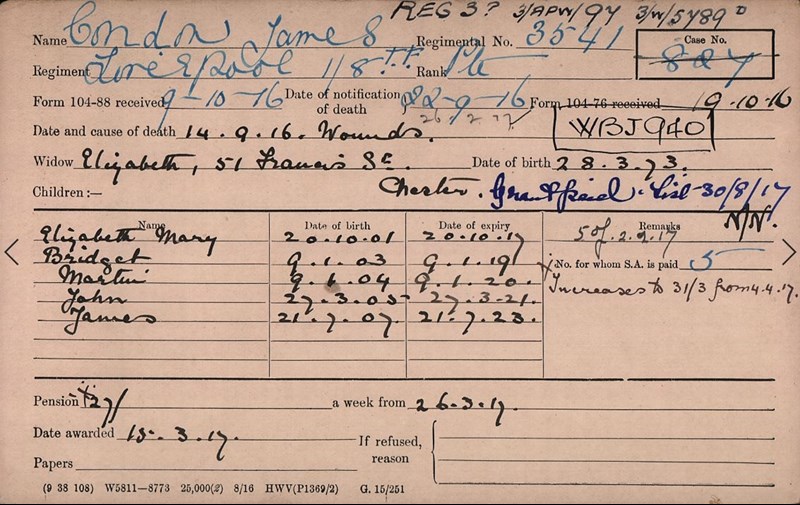 REG 3? 3/APW/97 3/W/5789 D
Name Condon James Regimental No. 3541 Case No.
Regiment Liverpool 1/8TH Rank Pte 827
Form 104-88 received 9-10-16 Date of notification of death 22-9-16 Form 104-76 received 19.10.16
26.2.17
Date and cause of death 14.9.16. Wounds. WBJ940
Widow Elizabeth, 51 Francis St. Date of birth 28.3.73.
Children:— Chester. Grant paid. List 30/8/17
N/N.
Name Date of birth Date of expiry Remarks
Elizabeth Mary 20.10.01 20.10.17 5 of 2.2.17
Bridget 9.1.03 9.1.19 No. for whom S.A. is paid 5
Martin 9.1.04 9.1.20. Increases to 31/3 from 4.4.17.
John 27.3.05 27.3.21.
James 21.7.07. 21.7.23.
Pension 27/ a week from 26.3.17.
Date awarded 15.3.17. If refused,
Papers reason
(9 38 108) W5811—8773 25,000(2) 8/16 HWV(P1369/2) G. 15/251